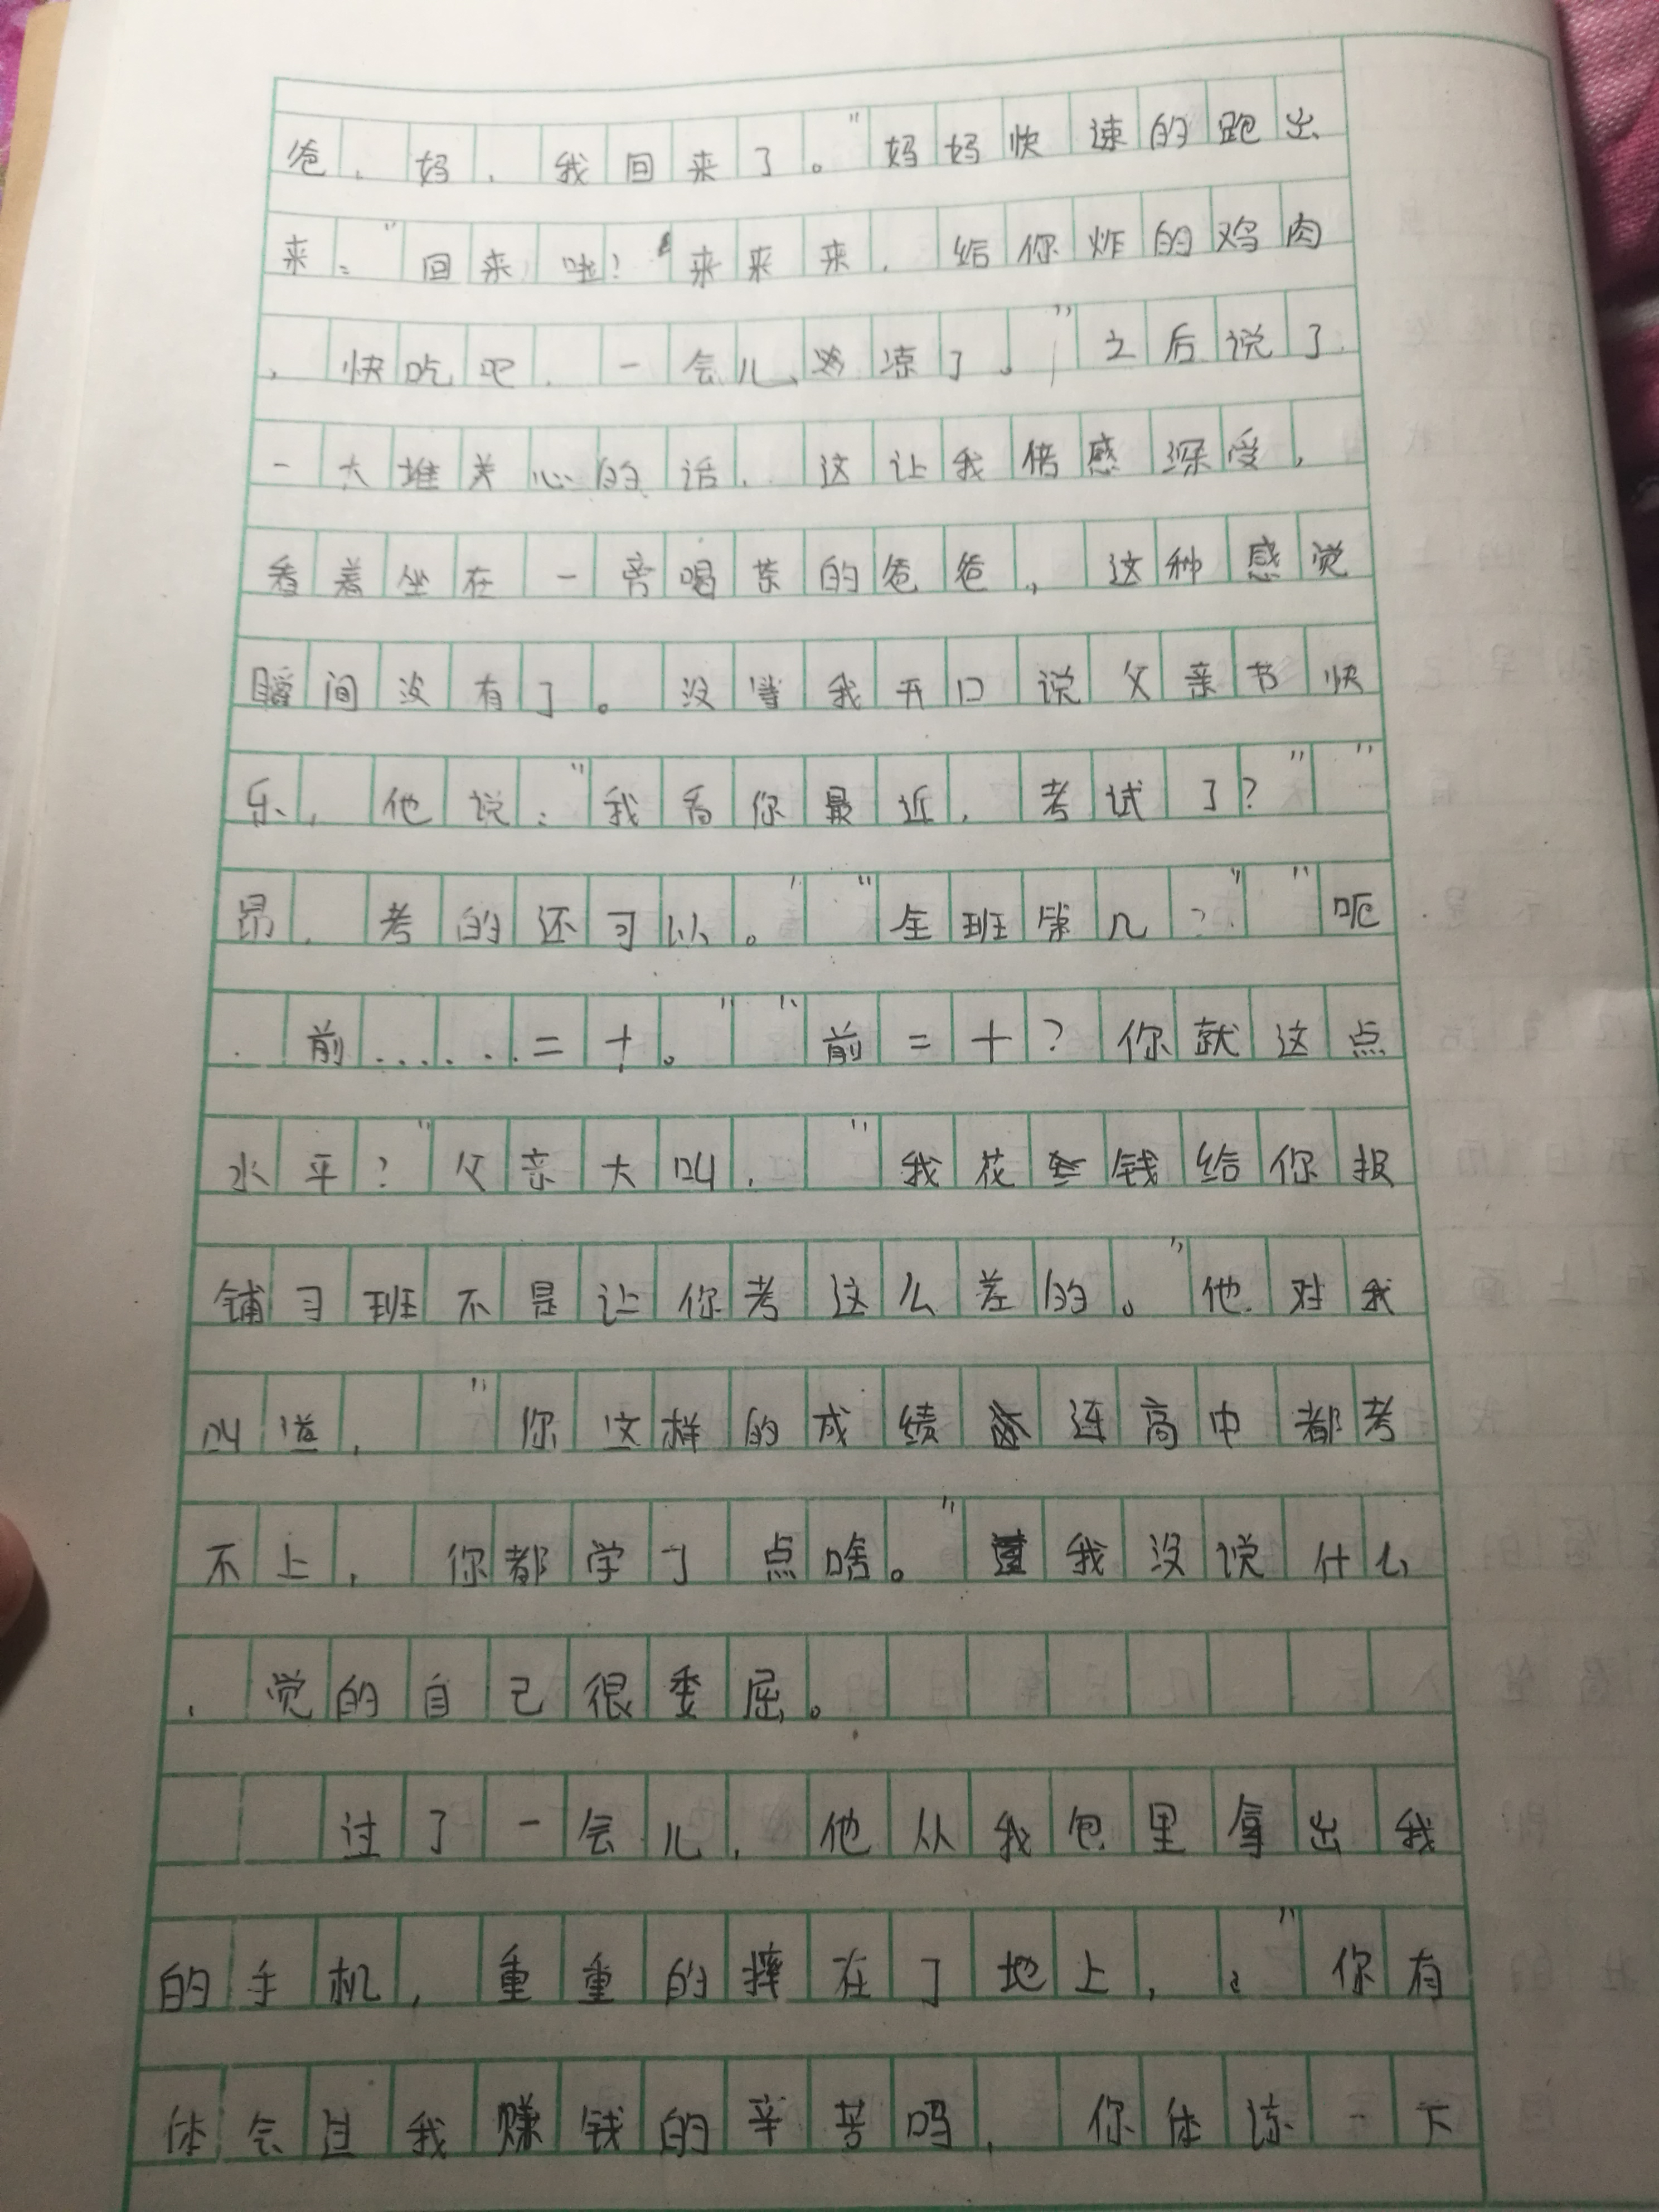 爸，妈，我回来了。"妈妈快速的跑出
来："回来啦！"来来来，给你炸的鸡肉
，快吃吧，一会儿凉了。"之后说了
一大堆关心的话，这让我倍感深受，
看着坐在一旁喝茶的爸爸，这种感觉
瞬间没有了。没等我开口说父亲节快
乐，他说："我看你最近，考试了？""
昂，考的还可以。""全班第几？""呃
，前……二十。""前二十？你就这点
水平？"父亲大叫，"我花钱给你报
铺习班不是让你考这么差的。"他对我
叫道，"你这样的成绩连高中都考
不上，你都学了点啥。"我没说什么
，觉的自己很委屈。
过了一会儿，他从我包里拿出我
的手机，重重的摔在了地上，："你有
体会过我赚钱的辛苦吗，你体谅一下